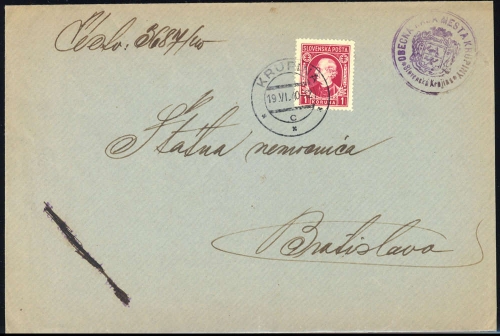 Číslo: 3687/40
SLOVENSKÁ POŠTA
1 KORUNA 1
KRUPINA
19.VI.40
C
OBECNÁ RADA MESTA KRUPINY
Štátna nemocnica
Bratislava